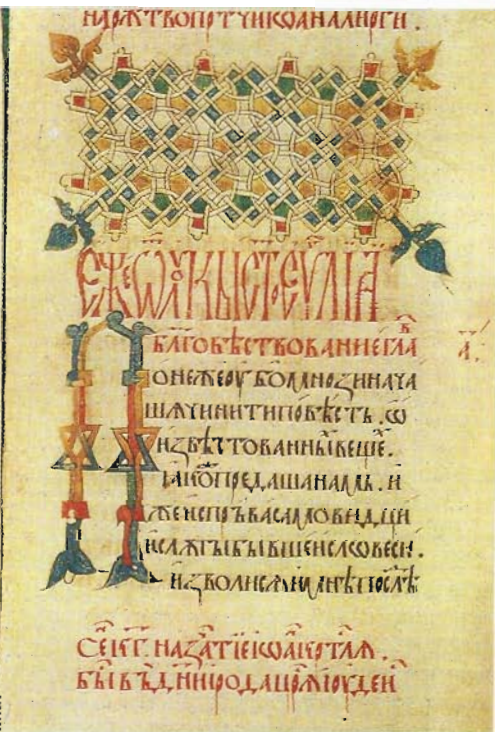 нарⷤтвопрⷣтчиіѡаналиѻги .
еже ѿ лоукы ст҃ое еѵⷢліа
благовѣствованиегла в҃
а҃.
Понежеоубомнозинача
шѧчинитиповѣсть . ѡ
извѣстованныⷯвещеⷯ .
ꙗкоⷤпредашанамъ . и
жеиспръвасамовидци
ислꙋгыбывшеисловеси .
изволисѧимнѣпослѣ
сеⷨкг҃. назачⷶтіеіѡакртлѧ .
бы́въдн҃ииродацрⷭѧіюудеи